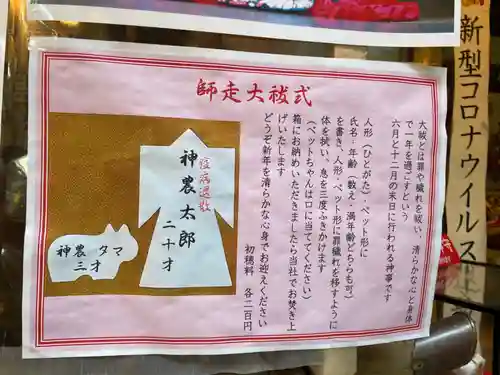 新型コロナウイルス
師走大祓式
大祓とは罪や穢れを祓い、清らかな心と身体
で一年を過ごすという
六月と十二月の末日に行われる神事です
人形(ひとがた)・ペット形に
氏名・年齢(数え・満年齢どちらも可)
を書き、人形・ペット形に罪穢れを移すように
体を拭い、息を三度ふきかけます
(ペットちゃんは口に当ててください)
箱にお納めいただきましたら当社でお焚き上
げいたします
どうぞ新年を清らかな心身でお迎えください
初穂料 各二百円
疫病退散
神農太郎
二十才
神農 タマ
三才